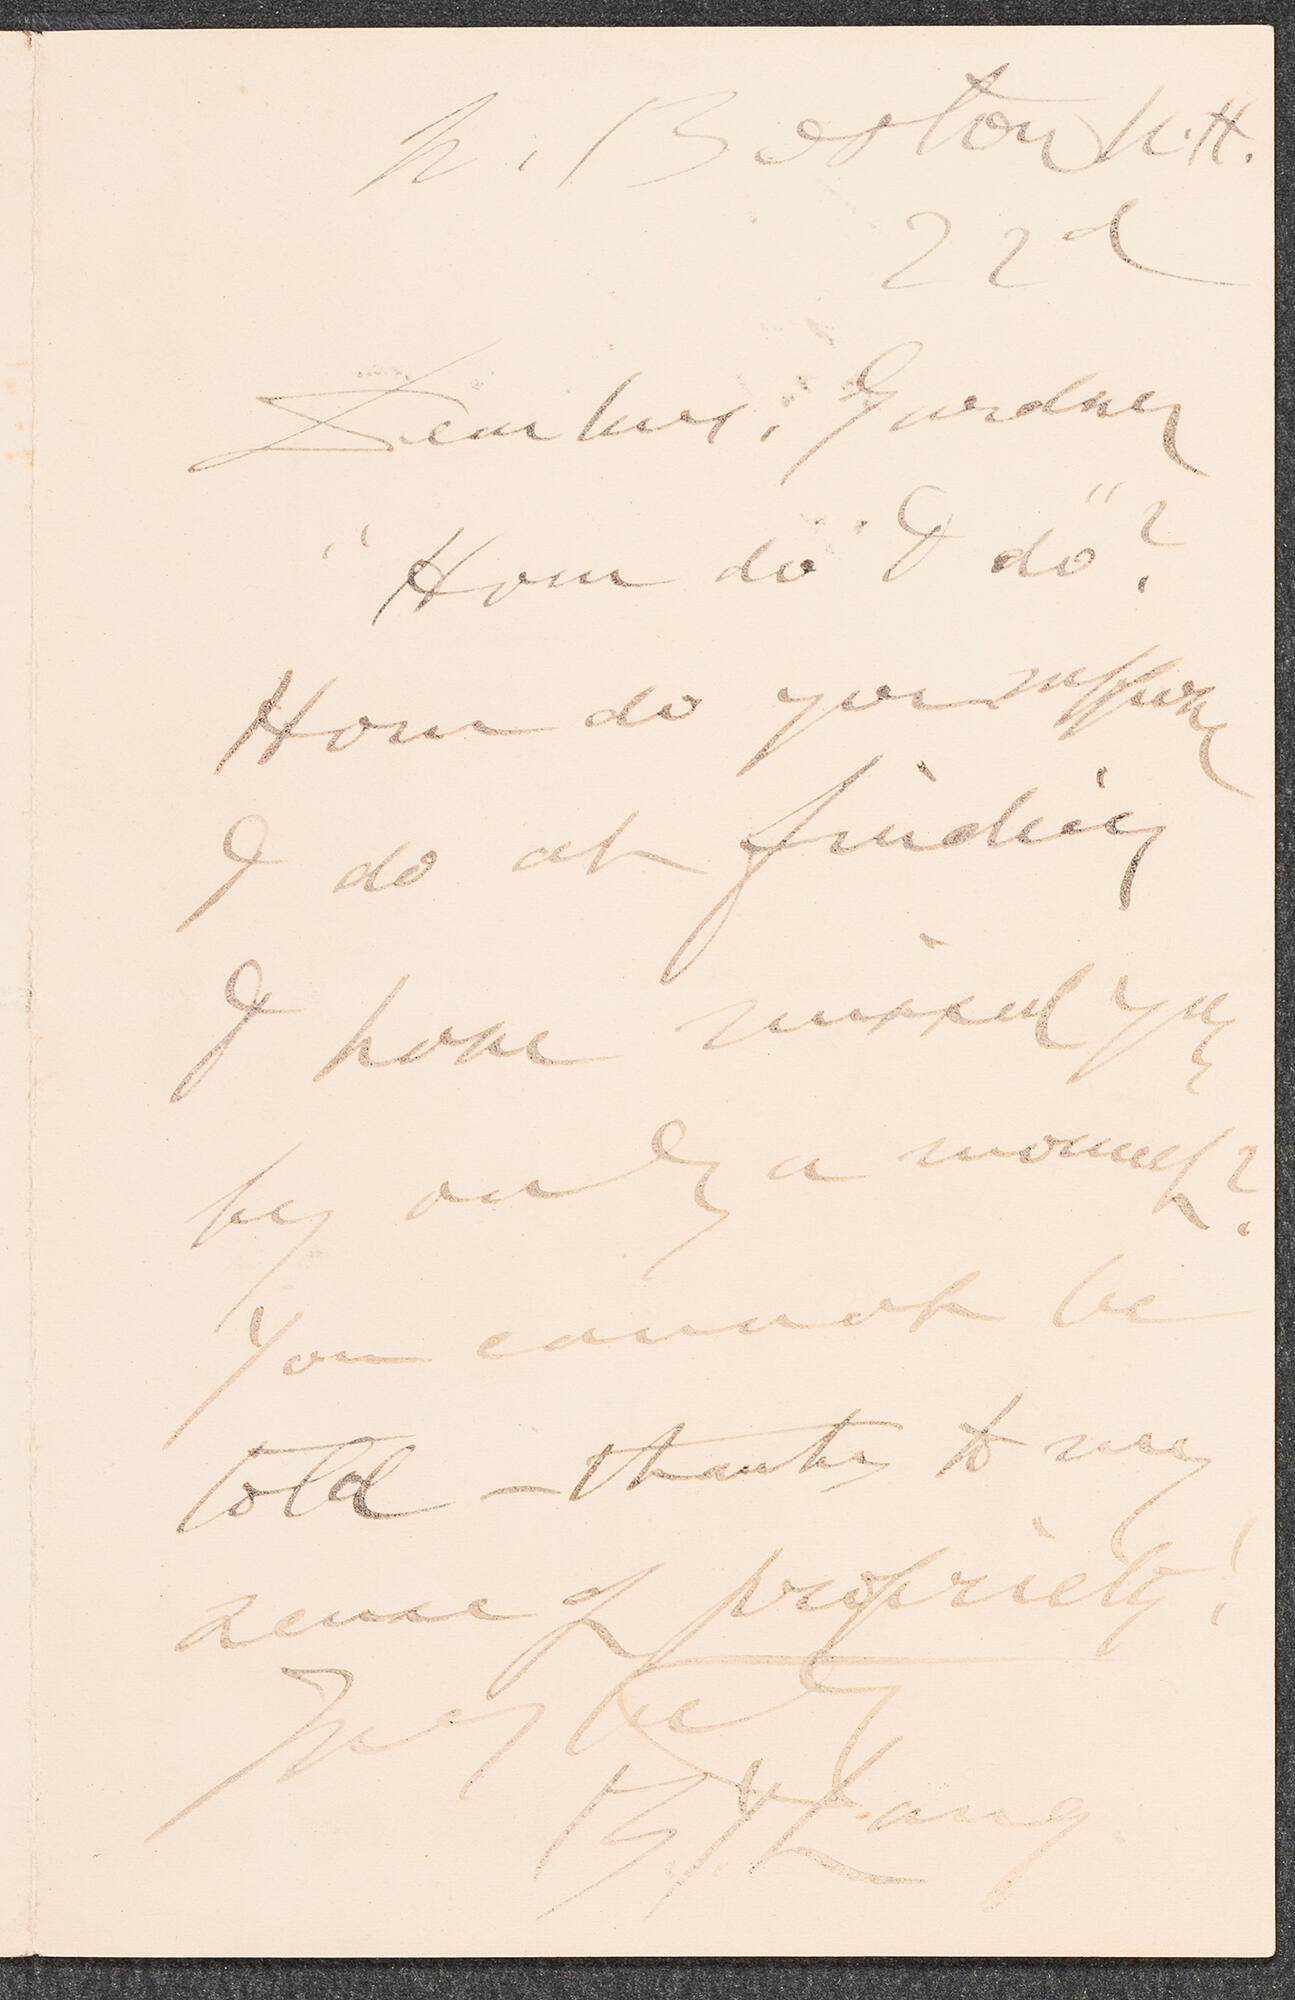 N. Boston N.H.
22d
Dear Mrs. Gardner
"How do I do"?
How do you suppose
I do at finding
I have missed you
by only a moment?
You cannot be
told – thanks to my
sense of propriety!
Very truly
B. J. Lang